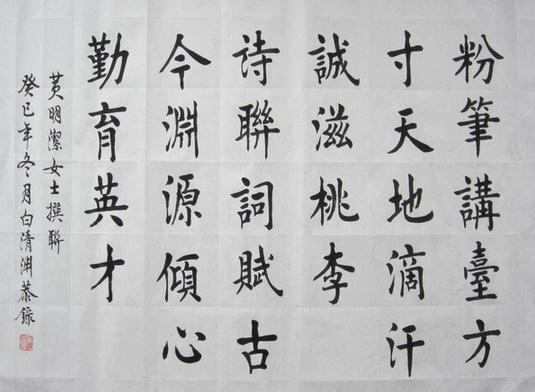 粉筆講臺方
寸天地滴汗
誠滋桃李
詩聯詞賦古
今淵源傾心
勤育英才
黄明潔女士撰聯
癸巳年冬月白清淵恭錄